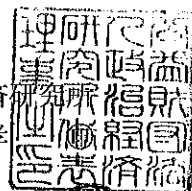 公益財団法
人政治経済
研究所代表
理事之印
研究所